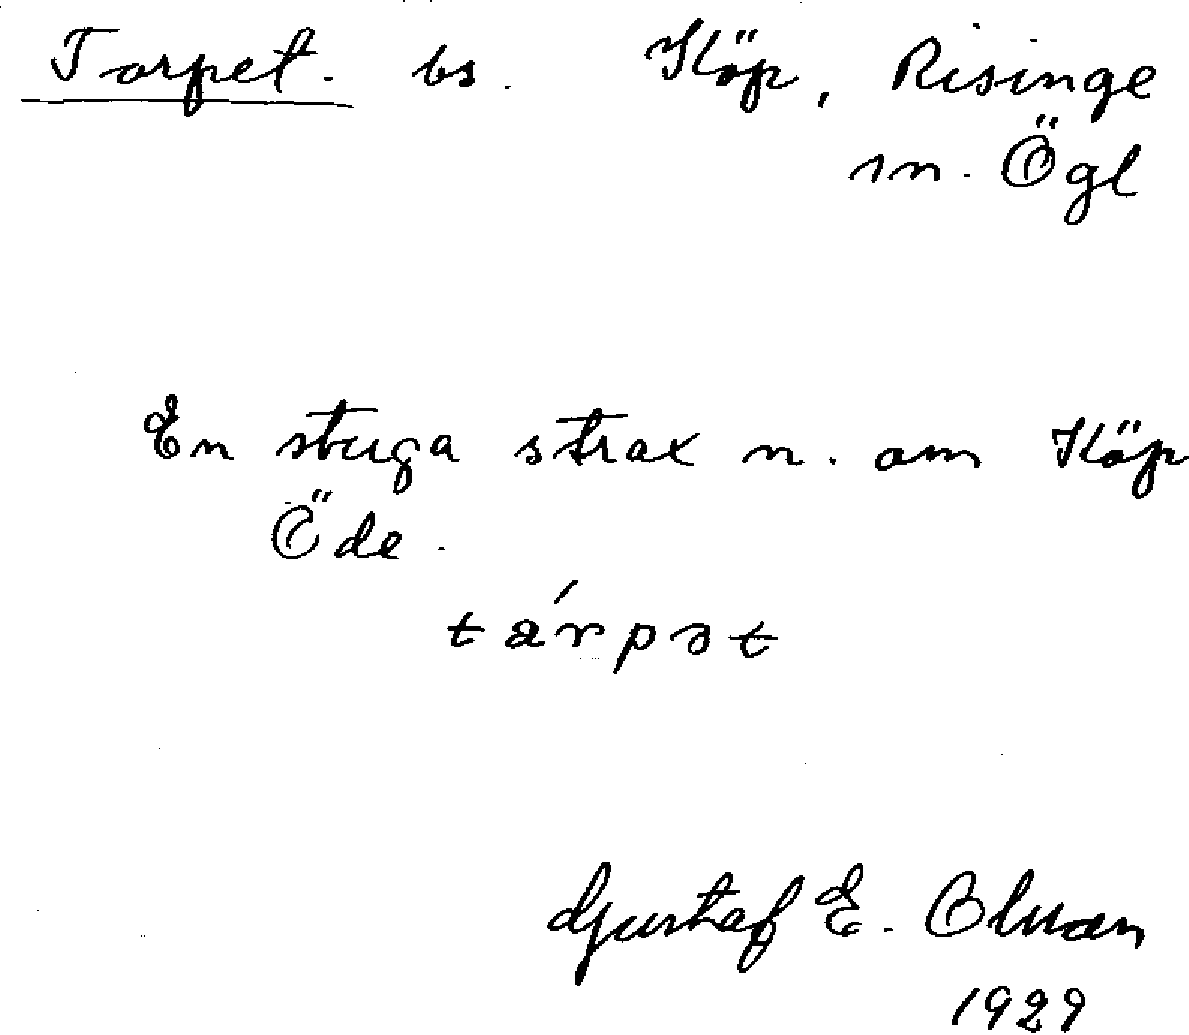 Torpet. bs. Köp, Risinge
sn. Ögl
En stuga strax n. om Köp
Öde.
tárpət
Gustaf E. Olsson
1929